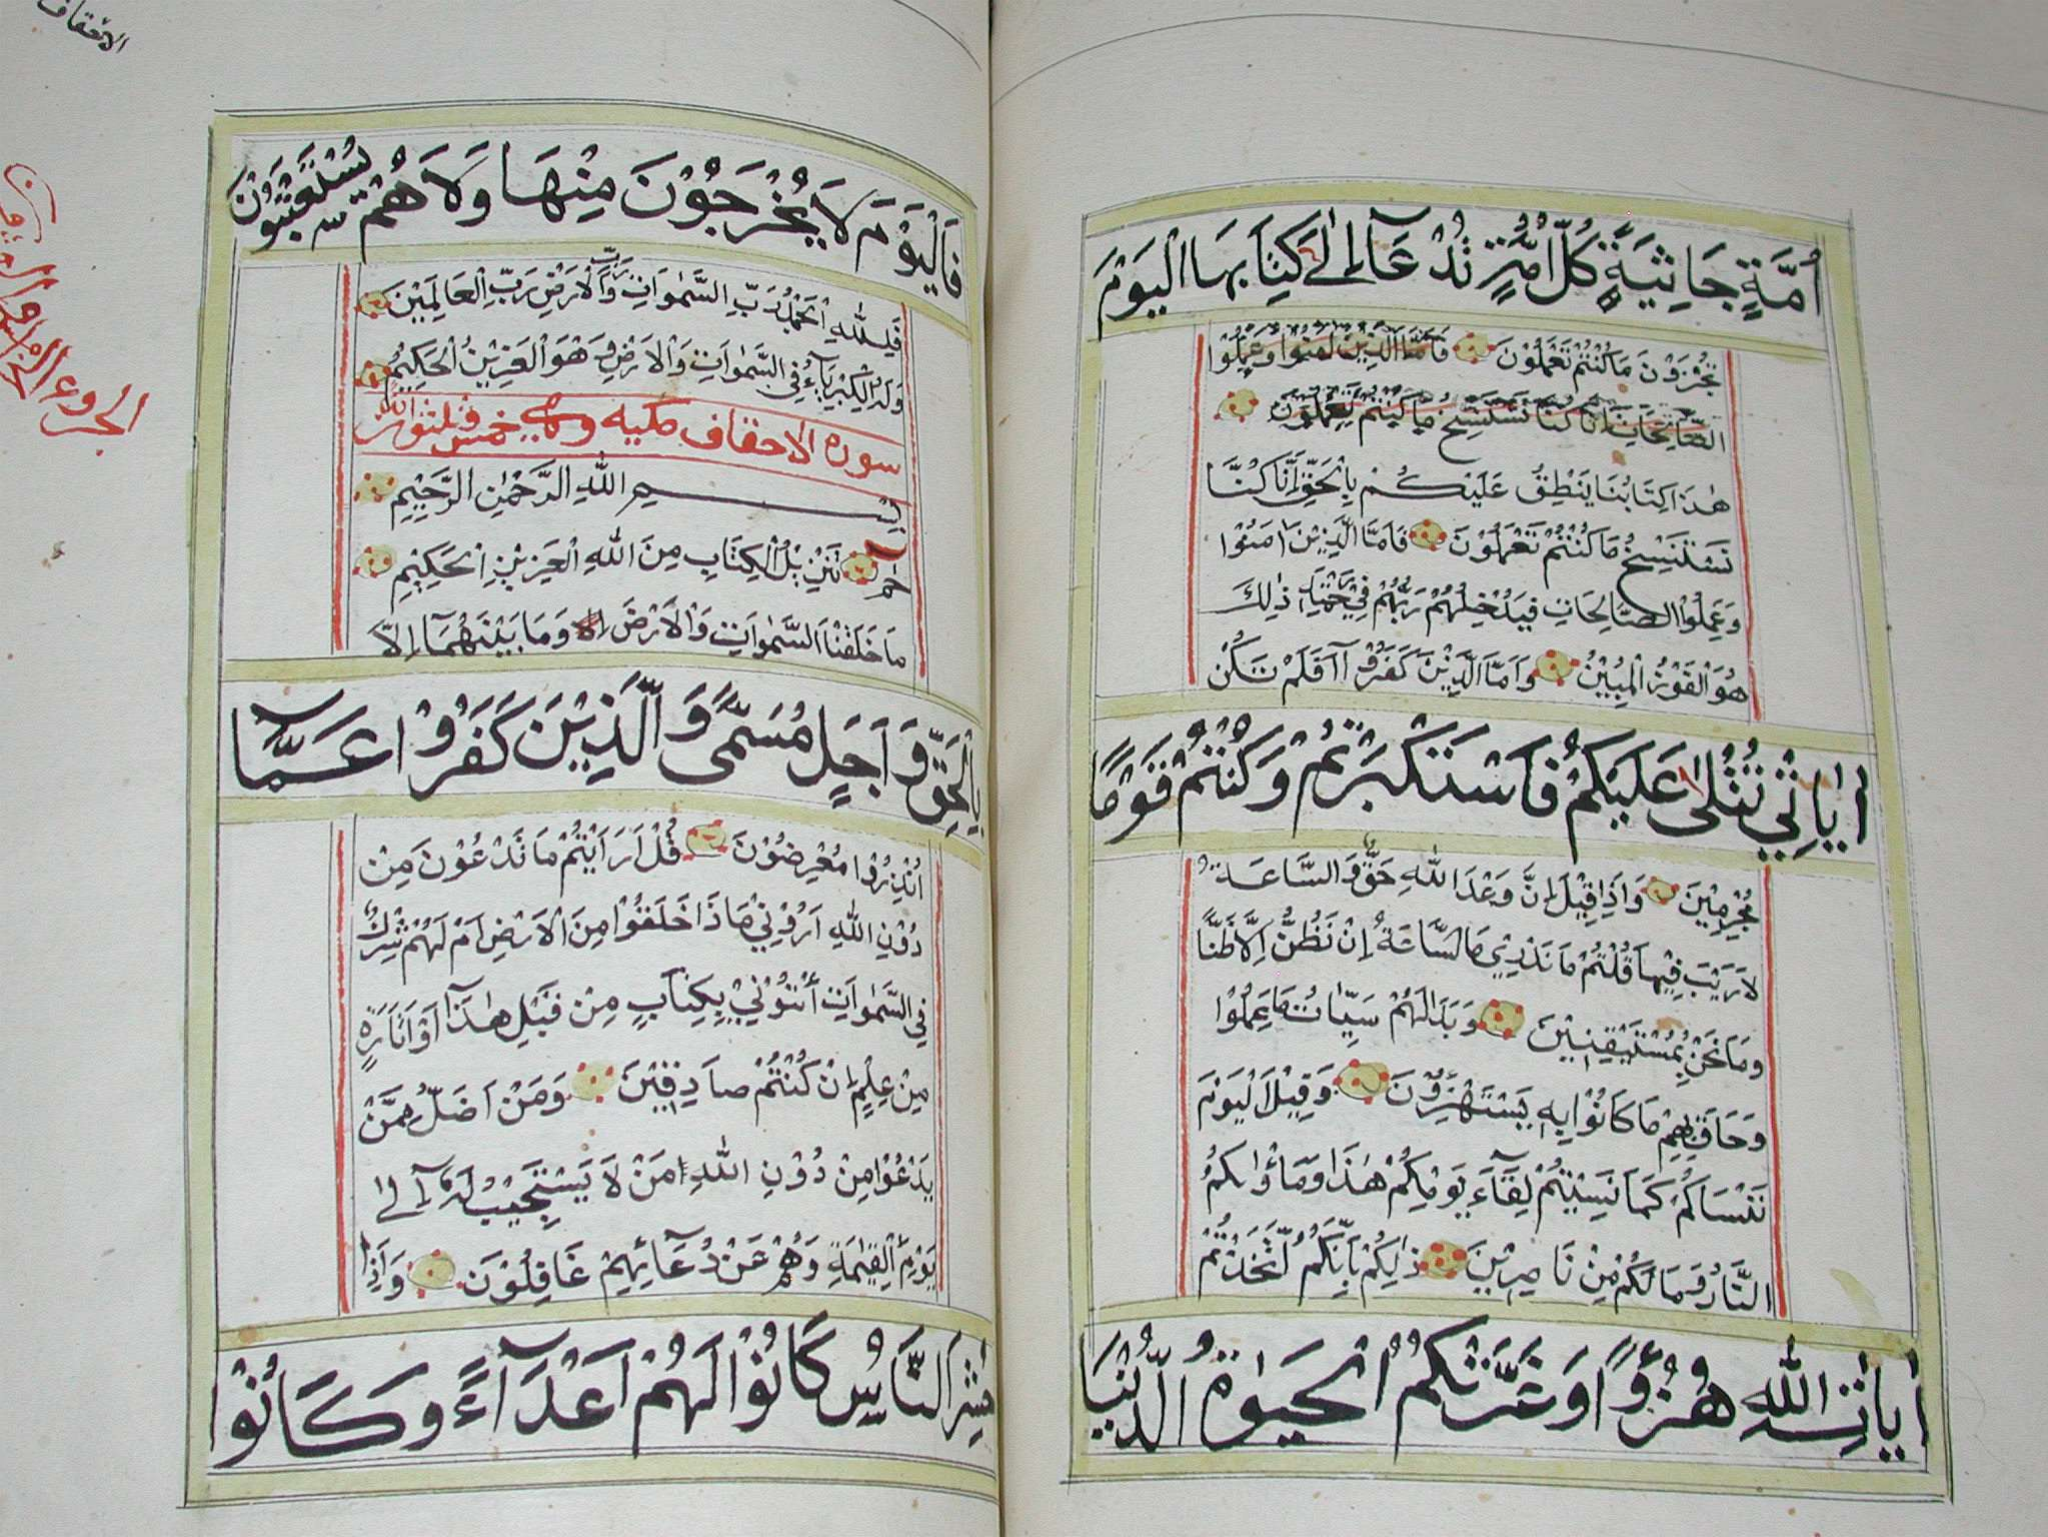 اُمَّةٍ جَاثِيَةً كُلُّ اُمَّةٍ تُدْعَآ اِلٰى كِتَابِهَا اَلْيَوْمَ
تُجْزَوْنَ مَا كُنْتُمْ تَعْمَلُوْنَ فَاَمَّا الَّذِيْنَ اٰمَنُوْا وَعَمِلُوْا
الصَّالِحَاتِ اِنَّا كُنَّا نَسْتَنْسِخُ مَا كُنْتُمْ تَعْمَلُوْنَ
هٰذَا كِتَابُنَا يَنْطِقُ عَلَيْكُمْ بِالْحَقِّ اِنَّا كُنَّا
نَسْتَنْسِخُ مَا كُنْتُمْ تَعْمَلُوْنَ فَاَمَّا الَّذِيْنَ اٰمَنُوْا
وَعَمِلُوْا الصَّالِحَاتِ فَيُدْخِلُهُمْ رَبُّهُمْ فِيْ رَحْمَتِهٖ ذٰلِكَ
هُوَ الْفَوْزُ الْمُبِيْنُ وَاَمَّا الَّذِيْنَ كَفَرُوْا اَفَلَمْ تَكُنْ
اٰيَاتِيْ تُتْلٰى عَلَيْكُمْ فَاسْتَكْبَرْتُمْ وَكُنْتُمْ قَوْمًا
مُجْرِمِيْنَ وَاِذَا قِيْلَ اِنَّ وَعْدَ اللّٰهِ حَقٌّ وَالسَّاعَةُ
لَا رَيْبَ فِيْهَا قُلْتُمْ مَا نَدْرِيْ مَا السَّاعَةُ اِنْ نَظُنُّ اِلَّا ظَنًّا
وَمَا نَحْنُ بِمُسْتَيْقِنِيْنَ وَبَدَا لَهُمْ سَيِّاٰتُ مَا عَمِلُوْا
وَحَاقَ بِهِمْ مَا كَانُوْا بِهٖ يَسْتَهْزِؤُنَ وَقِيْلَ الْيَوْمَ
نَنْسَاكُمْ كَمَا نَسِيْتُمْ لِقَآءَ يَوْمِكُمْ هٰذَا وَمَاْوٰىكُمُ
النَّارُ وَمَا لَكُمْ مِنْ نَاصِرِيْنَ ذٰلِكُمْ بِاَنَّكُمُ اتَّخَذْتُمْ
اٰيَاتِ اللّٰهِ هُزُوًا وَغَرَّتْكُمُ الْحَيٰوةُ الدُّنْيَا
الاحقاف
فَالْيَوْمَ لَا يُخْرَجُوْنَ مِنْهَا وَلَا هُمْ يُسْتَعْتَبُوْنَ
فَلِلّٰهِ الْحَمْدُ رَبِّ السَّمٰوَاتِ وَرَبِّ الْاَرْضِ رَبِّ الْعَالَمِيْنَ
وَلَهُ الْكِبْرِيَآءُ فِي السَّمٰوَاتِ وَالْاَرْضِ وَهُوَ الْعَزِيْزُ الْحَكِيْمُ
سوره الاحقاف مكيه وهي خمس وثلثون
بِسْمِ اللّٰهِ الرَّحْمٰنِ الرَّحِيْمِ
حٰمٓ تَنْزِيْلُ الْكِتَابِ مِنَ اللّٰهِ الْعَزِيْزِ الْحَكِيْمِ
مَا خَلَقْنَا السَّمٰوَاتِ وَالْاَرْضَ وَمَا بَيْنَهُمَآ اِلَّا
بِالْحَقِّ وَاَجَلٍ مُسَمًّى وَالَّذِيْنَ كَفَرُوْا عَمَّآ
اُنْذِرُوْا مُعْرِضُوْنَ قُلْ اَرَاَيْتُمْ مَا تَدْعُوْنَ مِنْ
دُوْنِ اللّٰهِ اَرُوْنِيْ مَاذَا خَلَقُوْا مِنَ الْاَرْضِ اَمْ لَهُمْ شِرْكٌ
فِي السَّمٰوَاتِ اْئْتُوْنِيْ بِكِتَابٍ مِنْ قَبْلِ هٰذَآ اَوْ اَثَارَةٍ
مِنْ عِلْمٍ اِنْ كُنْتُمْ صَادِقِيْنَ وَمَنْ اَضَلُّ مِمَّنْ
يَدْعُوْا مِنْ دُوْنِ اللّٰهِ مَنْ لَا يَسْتَجِيْبُ لَهٗٓ اِلٰى
يَوْمِ الْقِيٰمَةِ وَهُمْ عَنْ دُعَآئِهِمْ غَافِلُوْنَ وَاِذَا
حُشِرَ النَّاسُ كَانُوْا لَهُمْ اَعْدَآءً وَكَانُوْا